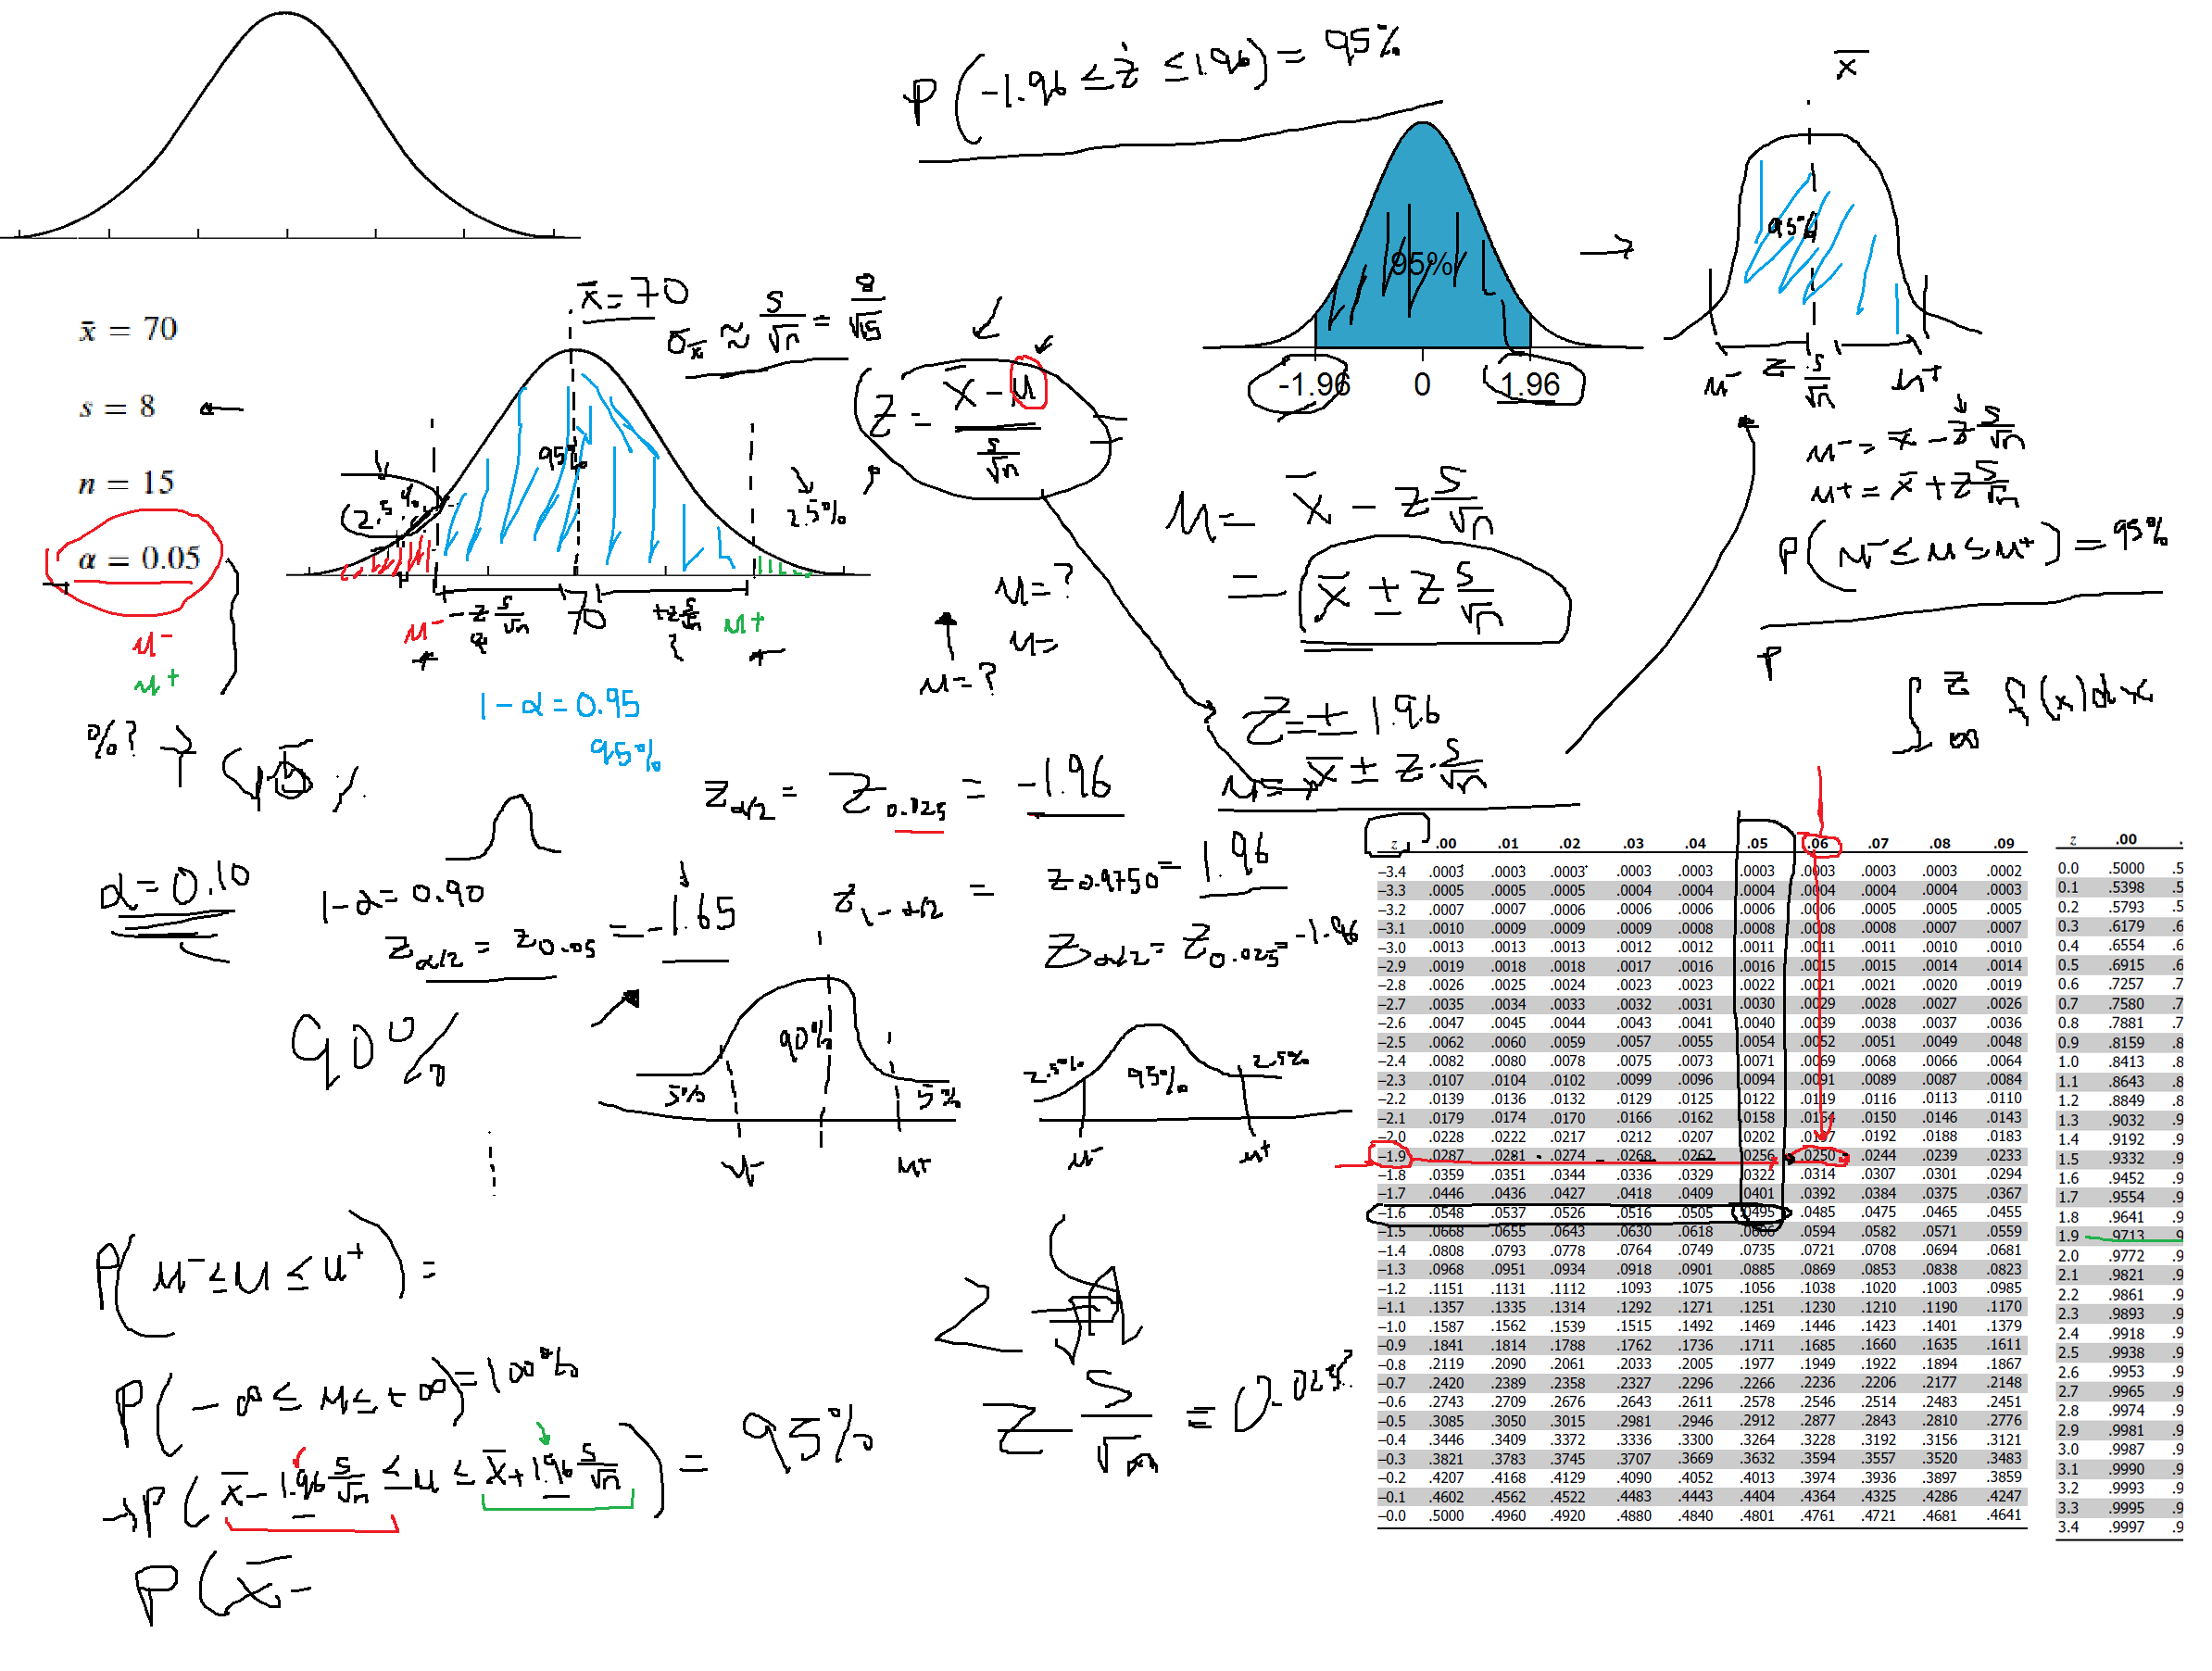 P(-1.96 ≤ z ≤ 1.96) = 95%
x̄
95%
-1.96 0 1.96
95%
μ⁻ z·s/√n μ⁺
μ⁻ = x̄ - z s/√n
μ⁺ = x̄ + z s/√n
P(μ⁻ ≤ μ ≤ μ⁺) = 95%
P
∫ ∞ z f(x)dx
x̄ = 70
s = 8
n = 15
α = 0.05
μ⁻
μ⁺
%?
x̄ = 70
σx̄ ≈ s/√n = 8/√15
95%
2.5%
2.5%
μ⁻ -z s/√n 70 +z s/√n μ⁺
? ?
1-α = 0.95
95%
z = x̄ - μ / s/√n
μ = x̄ - z s/√n
= x̄ ± z s/√n
μ = ?
μ =
μ = ?
z = ± 1.96
μ = x̄ ± z·s/√n
zα/2 = z0.025 = -1.96
z1-α/2 = z0.9750 = 1.96
zα/2 = z0.025 = -1.96
α = 0.10
1-α = 0.90
zα/2 = z0.05 = -1.65
90%
90%
5% 5%
μ⁻ μ⁺
2.5% 95% 2.5%
μ⁻ μ⁺
P(μ⁻ ≤ μ ≤ μ⁺) =
P(-∞ ≤ μ ≤ +∞) = 100%
→P(x̄ - 1.96 s/√n ≤ μ ≤ x̄ + 1.96 s/√n) = 95%
P(x̄ -
z
z s/√n = 0.025
z .00 .01 .02 .03 .04 .05 .06 .07 .08 .09
−3.4 .0003 .0003 .0003 .0003 .0003 .0003 .0003 .0003 .0003 .0002
−3.3 .0005 .0005 .0005 .0004 .0004 .0004 .0004 .0004 .0004 .0003
−3.2 .0007 .0007 .0006 .0006 .0006 .0006 .0006 .0005 .0005 .0005
−3.1 .0010 .0009 .0009 .0009 .0008 .0008 .0008 .0008 .0007 .0007
−3.0 .0013 .0013 .0013 .0012 .0012 .0011 .0011 .0011 .0010 .0010
−2.9 .0019 .0018 .0018 .0017 .0016 .0016 .0015 .0015 .0014 .0014
−2.8 .0026 .0025 .0024 .0023 .0023 .0022 .0021 .0021 .0020 .0019
−2.7 .0035 .0034 .0033 .0032 .0031 .0030 .0029 .0028 .0027 .0026
−2.6 .0047 .0045 .0044 .0043 .0041 .0040 .0039 .0038 .0037 .0036
−2.5 .0062 .0060 .0059 .0057 .0055 .0054 .0052 .0051 .0049 .0048
−2.4 .0082 .0080 .0078 .0075 .0073 .0071 .0069 .0068 .0066 .0064
−2.3 .0107 .0104 .0102 .0099 .0096 .0094 .0091 .0089 .0087 .0084
−2.2 .0139 .0136 .0132 .0129 .0125 .0122 .0119 .0116 .0113 .0110
−2.1 .0179 .0174 .0170 .0166 .0162 .0158 .0154 .0150 .0146 .0143
−2.0 .0228 .0222 .0217 .0212 .0207 .0202 .0197 .0192 .0188 .0183
−1.9 .0287 .0281 .0274 .0268 .0262 .0256 .0250 .0244 .0239 .0233
−1.8 .0359 .0351 .0344 .0336 .0329 .0322 .0314 .0307 .0301 .0294
−1.7 .0446 .0436 .0427 .0418 .0409 .0401 .0392 .0384 .0375 .0367
−1.6 .0548 .0537 .0526 .0516 .0505 .0495 .0485 .0475 .0465 .0455
−1.5 .0668 .0655 .0643 .0630 .0618 .0606 .0594 .0582 .0571 .0559
−1.4 .0808 .0793 .0778 .0764 .0749 .0735 .0721 .0708 .0694 .0681
−1.3 .0968 .0951 .0934 .0918 .0901 .0885 .0869 .0853 .0838 .0823
−1.2 .1151 .1131 .1112 .1093 .1075 .1056 .1038 .1020 .1003 .0985
−1.1 .1357 .1335 .1314 .1292 .1271 .1251 .1230 .1210 .1190 .1170
−1.0 .1587 .1562 .1539 .1515 .1492 .1469 .1446 .1423 .1401 .1379
−0.9 .1841 .1814 .1788 .1762 .1736 .1711 .1685 .1660 .1635 .1611
−0.8 .2119 .2090 .2061 .2033 .2005 .1977 .1949 .1922 .1894 .1867
−0.7 .2420 .2389 .2358 .2327 .2296 .2266 .2236 .2206 .2177 .2148
−0.6 .2743 .2709 .2676 .2643 .2611 .2578 .2546 .2514 .2483 .2451
−0.5 .3085 .3050 .3015 .2981 .2946 .2912 .2877 .2843 .2810 .2776
−0.4 .3446 .3409 .3372 .3336 .3300 .3264 .3228 .3192 .3156 .3121
−0.3 .3821 .3783 .3745 .3707 .3669 .3632 .3594 .3557 .3520 .3483
−0.2 .4207 .4168 .4129 .4090 .4052 .4013 .3974 .3936 .3897 .3859
−0.1 .4602 .4562 .4522 .4483 .4443 .4404 .4364 .4325 .4286 .4247
−0.0 .5000 .4960 .4920 .4880 .4840 .4801 .4761 .4721 .4681 .4641
z .00 .
0.0 .5000 .5
0.1 .5398 .5
0.2 .5793 .5
0.3 .6179 .6
0.4 .6554 .6
0.5 .6915 .6
0.6 .7257 .7
0.7 .7580 .7
0.8 .7881 .7
0.9 .8159 .8
1.0 .8413 .8
1.1 .8643 .8
1.2 .8849 .8
1.3 .9032 .9
1.4 .9192 .9
1.5 .9332 .9
1.6 .9452 .9
1.7 .9554 .9
1.8 .9641 .9
1.9 .9713 .9
2.0 .9772 .9
2.1 .9821 .9
2.2 .9861 .9
2.3 .9893 .9
2.4 .9918 .9
2.5 .9938 .9
2.6 .9953 .9
2.7 .9965 .9
2.8 .9974 .9
2.9 .9981 .9
3.0 .9987 .9
3.1 .9990 .9
3.2 .9993 .9
3.3 .9995 .9
3.4 .9997 .9